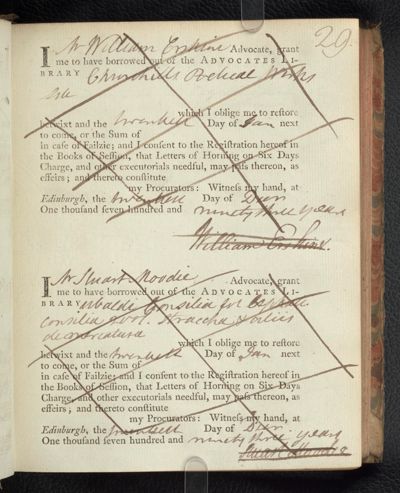 29.
I Mr William Erskine Advocate, grant
me to have borrowed out of the ADVOCATES LI-
BRARY Churchills Poetical Works
which I oblige me to restore
betwixt and the twentieth Day of Jan next
to come, or the Sum of
in case of Failzie; and I consent to the Registration hereof in
the Books of Session, that Letters of Horning on Six Days
Charge, and other executorials needful, may pass thereon, as
effeirs; and thereto constitute
my Procurators: Witness my hand, at
Edinburgh, the twentieth Day of Decr
One thousand seven hundred and ninety three years
William Erskine.
I Mr Stuart Moodie Advocate, grant
me to have borrowed out of the ADVOCATES LI-
BRARY Ubaldi Consilia
consilia Straccha
de mercatura
which I oblige me to restore
betwixt and the twentieth Day of Jan next
to come, or the Sum of
in case of Failzie; and I consent to the Registration hereof in
the Books of Session, that Letters of Horning on Six Days
Charge, and other executorials needful, may pass thereon, as
effeirs; and thereto constitute
my Procurators: Witness my hand, at
Edinburgh, the twentieth Day of Decr
One thousand seven hundred and ninety three years
Stuart Moodie